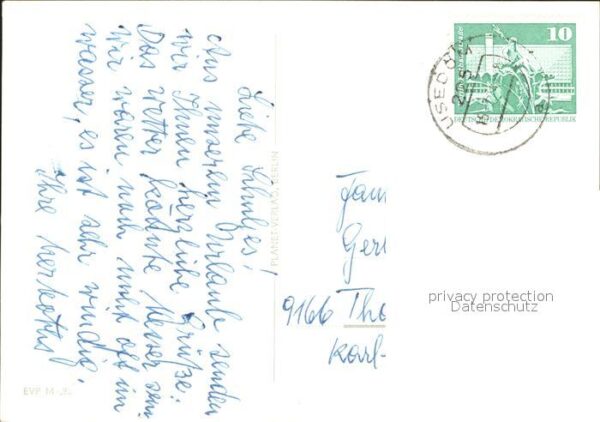 Liebe Schulzes!
Aus unserem Urlaub senden
wir Ihnen herzliche Grüße.
Das Wetter könnte besser sein
Wir waren noch nicht oft im
wasser, es ist sehr windig.
Ihre
PLANET-VERLAG BERLIN
EVP M
10
DEUTSCHE DEMOKRATISCHE REPUBLIK
USEDOM
Fam
Ger
9166 Tho
Karl-
privacy protection
Datenschutz